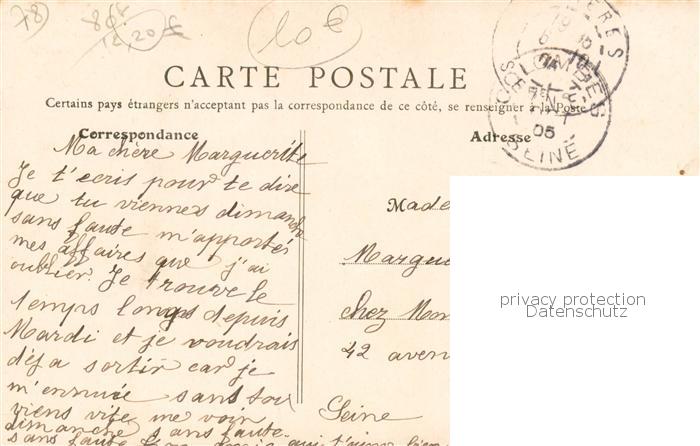 78
10 €
12,20
CARTE POSTALE
Certains pays étrangers n'acceptant pas la correspondance de ce côté, se renseigner à la Poste
Correspondance
Adresse
COLOMBES
SEINE
05
Ma chère Marguerite
Je t'ecris pour te dire
que tu viennes dimanche
sans faute m'apporter
mes affaires que j'ai
oublier. Je trouve le
temps longs depuis
Mardi et je voudrais
déja sortir car je
m'ennuie sans toi
viens vite me voir
dimanche sans faute.
sans faute
Made
Margue
chez Mon
42 aven
Seine
privacy protection
Datenschutz